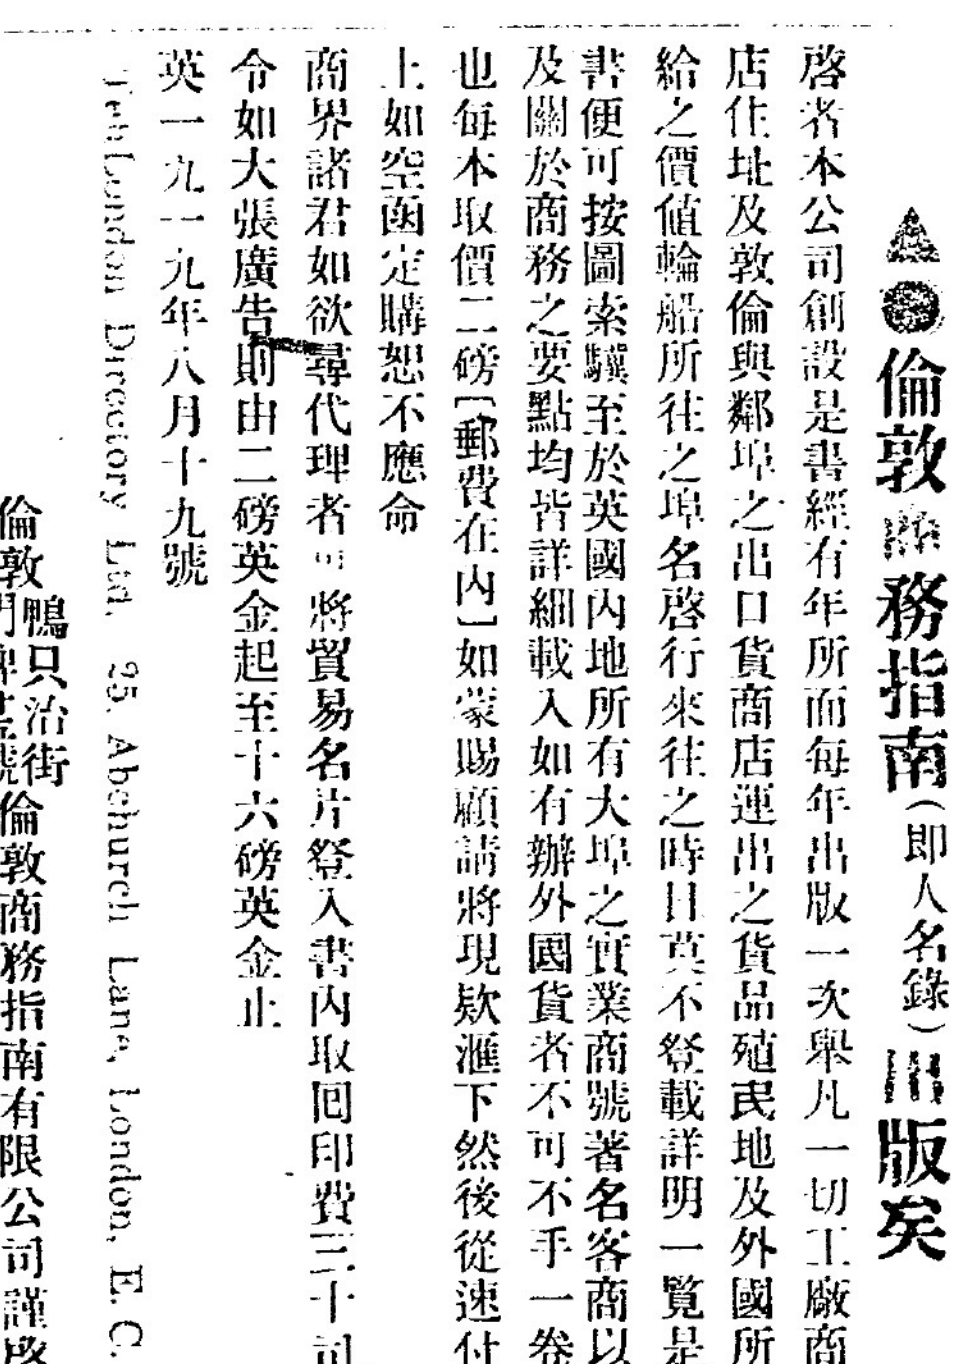 倫敦務指南(即人名錄)出版矣
啓者本公司創設是書經有年所而每年出版一次舉凡一切工廠商
店住址及敦倫與鄰埠之出口貨商店運出之貨品殖民地及外國所
給之價値輪船所往之埠名啓行來往之時日莫不登載詳明一覽是
書便可按圖索驥至於英國內地所有大埠之實業商號著名客商以
及關於商務之要點均皆詳細載入如有辦外國貨者不可不手一卷
也每本取價二磅[郵費在內]如蒙賜顧請將現欵滙下然後從速付
上如空函定購恕不應命
商界諸君如欲尋代理者可將貿易名片登入書內取囘印費三十司
令如大張廣告則由二磅英金起至十六磅英金止
英一九一九年八月十九號
The London Directory Ltd. 25, Abchurch Lane, London, E. C.
倫敦鴨只治街門牌號倫敦商務指南有限公司謹啓